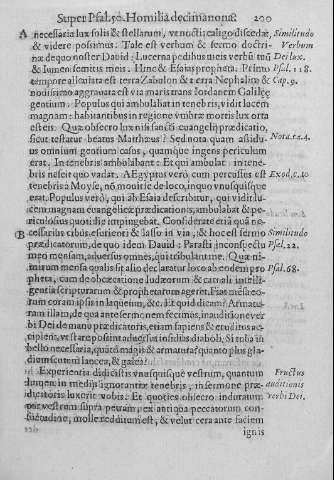 Super Psal. 50. Homilia decimanona. 200
A necessaria lux solis & stellarum, vt noctis caligo discedat,
Similitudo
& videre possimus. Tale est verbum & sermo doctri-
Verbum
næ de quo noster Dauid: Lucerna pedibus meis verbũ tuũ
Dei lux.
& lumen semitis meis. Hinc & Esaias propheta. Primo
Psal. 118.
tempore alleuiata est terra Zabulon & terra Nephtalim: &
Cap. 9.
nouissimo aggrauata est via maris trans Iordanem Galileæ
gentium. Populus qui ambulabat in tenebris, vidit lucem
magnam: habitantibus in regione vmbræ mortis lux orta
est eis. Quæ obsecro lux nisi sancti euangelij prædicatio,
sicut testatur beatus Matthæus? Sed nota quam assidu-
Nota. c. 4.
us omnium gentium casus, quamque ingens periculum
erat. In tenebris ambulabant: Et qui ambulat in tene-
bris nescit quo vadat. AEgyptus verò cum percussus est
Exod. c. 10
tenebris à Moyse, nõ mouit se de loco, in quo vnusquisque
erat. Populus verò, qui ab Esaia describitur, qui vidit lu-
cem magnam euangelicæ prædicationis, ambulabat & pe-
riculosius quotidie impingebat. Considerate etiã quã ne-
B cessarius cibus esurienti & lasso in via, & hoc est sermo
Similitudo
prædicatorum, de quo idem Dauid: Parasti in conspectu
Psal. 22.
meo mensam, aduersus omnes, qui tribulant me. Quæ ni-
mirum mensa qualis sit alio declaratur loco ab eodem pro
Psal. 68.
pheta, cum de obcæcatione Iudæorum & carnali intelli-
gentia scripturarum & prophetarum ageret. Fiat mẽsa eo-
rum coram ipsis in laqueum, &c. Et quid dicam? Armatu-
ram illam, de qua ante sermonem fecimus, in auditione ver
bi Dei de manu prædicatoris, etiam sapiens & eruditus ac-
cipient, vt stare possint aduersus insidias diaboli, Si toba in
bello necessaria, quãto magis & armatura: quanto plus gla-
dium scutum lancea, & galea?
Experientia didicistis vnusquisque vestrum, quantum
Fructus
lumen in medijs ignorantiæ tenebris, in sermone præ-
auditionis
dicatoris luxerit vobis: Et quoties obsecro induratum
verbi Dei.
cor vestrum supra petram, ex antiqua peccatorum con-
suetudine, modo mollescit, & velut cera ante faciem
ignis